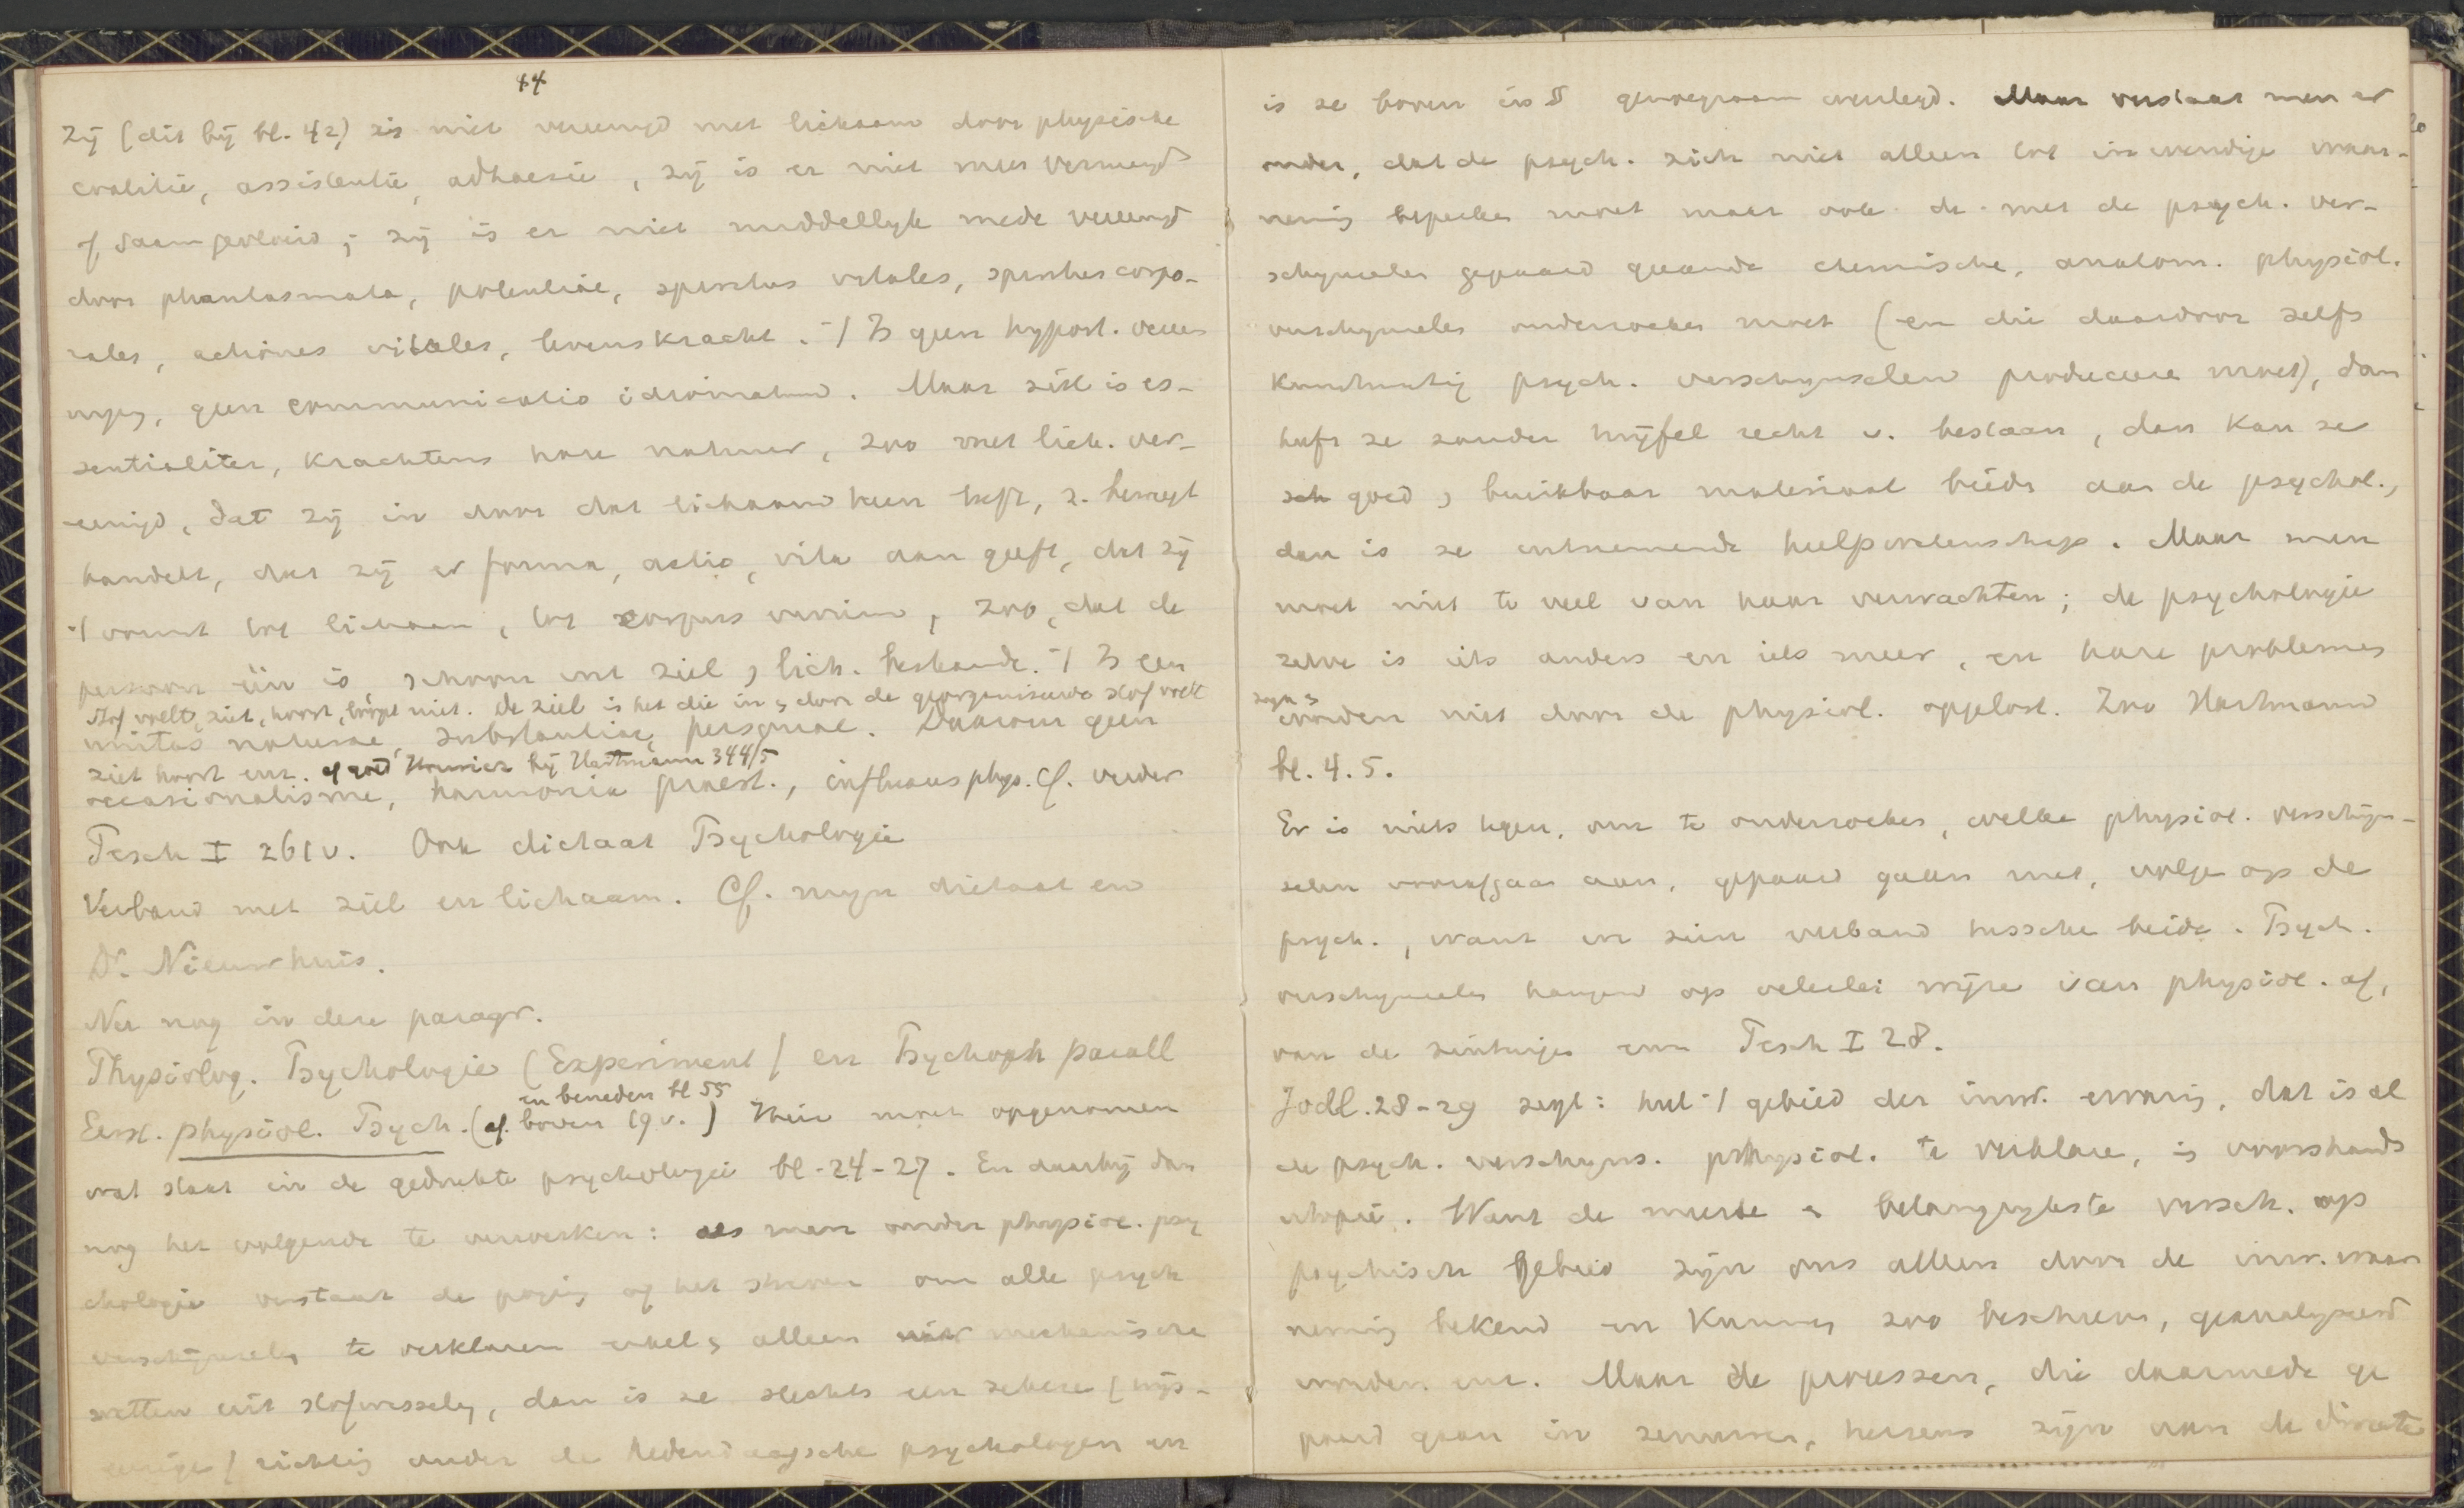 44
Zij (dit bij bl. 42) is niet vereenigd met lichaam door physische
coalitie, assistentie, adhaesie, zij is er niet mee vermengd
of saamgevloeid; zij is er niet middellijk mede vereenigd
door phantasmata, potentiae, spiritus vitales, spiritus corpo-
rales, actiones vitales, levenskracht. 't Is geen hypost. veree
niging, geen communicatio idiomatum. Maar ziel is es-
sentialiter, krachtens hare natuur, zoo met lich. ver-
eenigd, dat zij in door dat lichaam heen leeft, z. beweegt
handelt, dat zij er forma, actio, vita aan geeft, dat zij
't vormt tot lichaam, tot corpus vivum, zoo, dat de
persoon één is schoon uit ziel, lich. bestaande. 't Is een
Stof voelt, ziet, hoort, niet. De ziel is het die in, door de georganiseerde stof voelt
unitas naturae, substantiae, personae. Daarom geen
ziet hoort enz. bij Hartmann 344/5
occasionalisme, harmonia praest., influxus phys. Cf. verder
Pesch I 261v. Ook dictaat Psychologie
Verband met ziel en lichaam. Cf. mijn dictaat en
Dr. Nieuwhuis.
Nu nog in deze paragr.
Physiolog. Psychologie (Experiment) en Psychoph parall
en beneden bl 55
Eerst. physiol. Psych. (cf. boven 19v.) Hier moet opgenomen
wat staat in de gedrukte psychologie bl. 24-27. En daarbij dan
nog het volgende te verwerken: als men onder physiol. psy
chologie verstaat de poging of het streven om alle psych
verschijnselen te verklaren enkel, alleen uit mechanische
wetten uit stofwisseling, dan is ze slechts een zekere (wijs-
geerige) richting onder de hedendaagsche psychologen en
is ze boven in § genoegzaam weerlegd. Maar verstaat men er
onder, dat de psych. zich niet alleen tot inwendige waar-
neming beperken moet maar ook de met de psych. ver-
schijnselen gepaard gaande chemische, anatom. physiol.
verschijnselen onderzoeken moet (en die daardoor zelfs
kunstmatig psych. verschijnselen produceere moet), dan
heeft ze zonder twijfel recht v. bestaan, dan kan ze
goed, bruikbaar materiaal bieden aan de psychol.,
dan is ze uitnemende hulpwetenschap. Maar men
moet niet te veel van haar verwachten; de psychologie
zelve is iets anders en iets meer, en hare problemen
zijn,
worden niet door de physiol. opgelost. Zoo Hartmann
bl. 4. 5.
Er is niets tegen, om te onderzoeken, welke physiol. verschijn-
selen voorafgaan aan, gepaard gaan met, volgen op de
psych., want er is een verband tussche beide. Psych.
verschijnselen hangen op velerlei wijze van physiol. af,
van de zintuigen enz Pesch I 28.
Jodl. 28-29 zegt: heel 't gebied der inw. ervaring, dat is al
de psych. verschijns. physiol. te verklaren, is voorshands
utopie. Want de meeste & belangrijkste versch. op
psychisch gebied zijn ons alleen door de inw. waar
neming bekend en kunnen zoo beschreven, geanalyseerd
worden enz. Maar de processen, die daarmede ge
paard gaan in zenuwen, hersens zijn van de directe